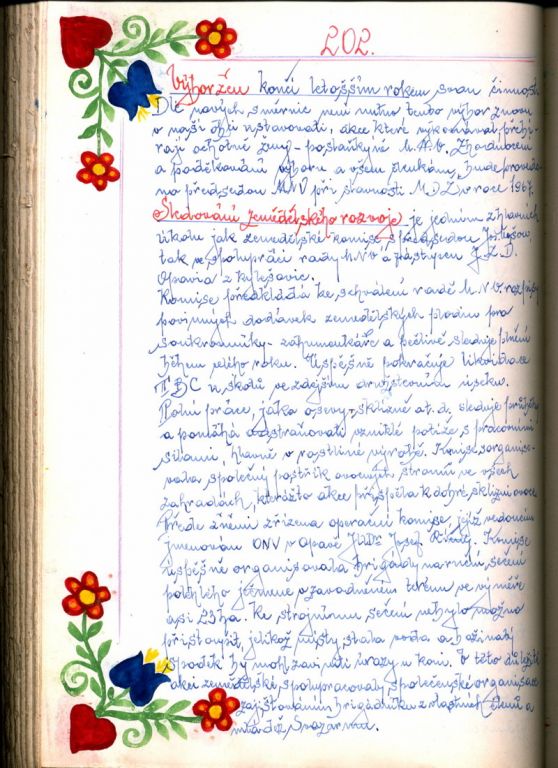 202.
Výbor žen končí letošším rokem svou činnost
Dle nových směrnic není nutno tento výbor znovu
v naší obci ustavovati, akce které vykonával, přebí-
rají ochotné ženy - poslankyně M.N.V. Zhodnocení
a poděkování výboru a všem členkám, bude provede-
no předsedou MNV při slavnosti M.D.Ž. v roce 1967.
Sledování zemědělského rozvoje, je jedním z hlavních
úkolu jak zemědělské komise s předsedou
tak ve spolupráci rady MNV a zástupcem J.Z.D.
Opavia z Kylešovic.
Komise předkládá ke schválení radě M.N.V. rozpisy
povinných dodávek zemědělských plodin pro
soukromníky - záhumenkáře a pečlivě sleduje plnění
během celého roku. Úspěšně pokračuje likvidace
TBC u skotu ve zdejším družstevním úseku.
Polní práce, jako osevy, sklizně a t. d. sleduje průběžně
a pomáhá odstraňovati vzniklé potíže s pracovními
silami, hlavně v rostlinné výrobě. Komise organiso-
vala společný postřik ovocných stromů ve všech
zahradách, kterážto akce přispěla k dobré sklizni ovoce.
Přede žněmi zřízena operační komise, jejíž vedoucím
jmenován ONV v Opavě Josef
úspěšně organisovala brigády na ruční sečení
polehlého ječmene v zavodněném terénu ve výměře
asi 25 ha. Ke strojnímu sečení nebylo možno
přistoupit, jelikož místy stála voda a bažinatý
spodek by mohl zaviniti úrazy u koní. V této důležité
akci zemědělské, spolupracovaly společenské organisace
zajišťováním brigádníku z vlastních členů a
mládež Svazarmu.